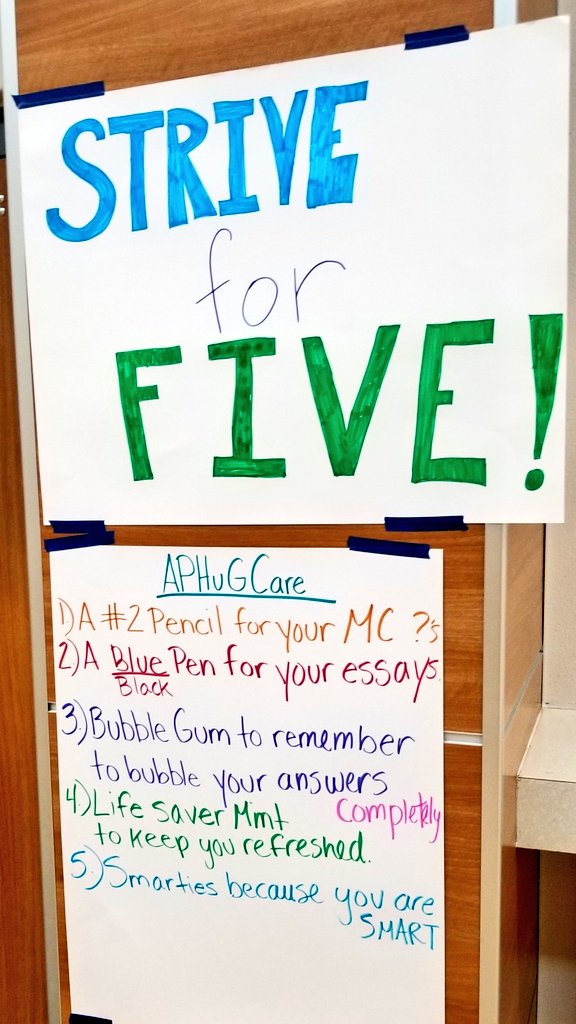 STRIVE
for
FIVE!
APHuGCare
1) A #2 Pencil for your MC ?'s
2) A Blue Pen for your essays.
Black
3.) Bubble Gum to remember
to bubble your answers
completely
4) Life Saver Mint
to keep you refreshed.
5.) Smarties because you are
SMART